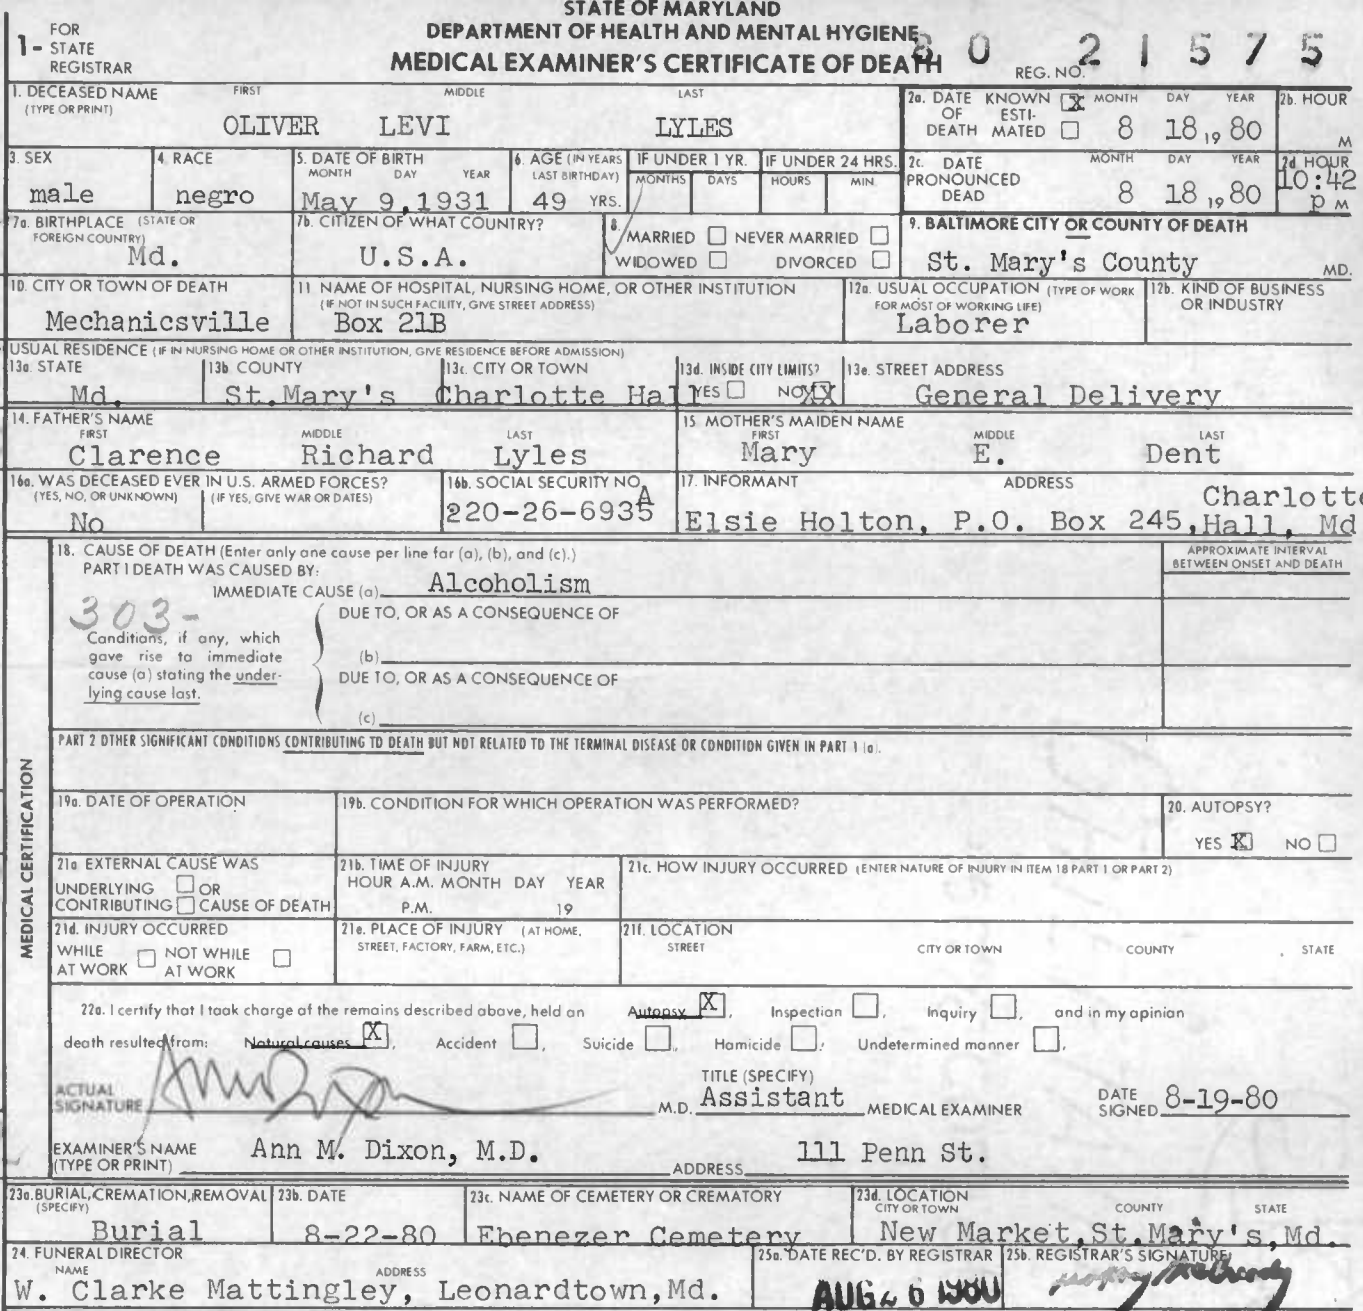 STATE OF MARYLAND
DEPARTMENT OF HEALTH AND MENTAL HYGIENE
MEDICAL EXAMINER'S CERTIFICATE OF DEATH
1- FOR STATE REGISTRAR
REG. NO. 80 21575
1. DECEASED NAME (TYPE OR PRINT) FIRST MIDDLE LAST
OLIVER LEVI LYLES
2a. DATE OF DEATH KNOWN X ESTIMATED MONTH DAY YEAR
8 18, 19 80
2b. HOUR M
3. SEX
male
4. RACE
negro
5. DATE OF BIRTH MONTH DAY YEAR
May 9,1931
6. AGE (IN YEARS LAST BIRTHDAY)
49 YRS.
IF UNDER 1 YR. MONTHS DAYS
IF UNDER 24 HRS. HOURS MIN.
2c. DATE PRONOUNCED DEAD MONTH DAY YEAR
8 18, 19 80
2d HOUR
10:42
P M
7a. BIRTHPLACE (STATE OR FOREIGN COUNTRY)
Md.
7b. CITIZEN OF WHAT COUNTRY?
U.S.A.
8. MARRIED NEVER MARRIED
WIDOWED DIVORCED
9. BALTIMORE CITY OR COUNTY OF DEATH
St. Mary's County MD.
10. CITY OR TOWN OF DEATH
Mechanicsville
11. NAME OF HOSPITAL, NURSING HOME, OR OTHER INSTITUTION
(IF NOT IN SUCH FACILITY, GIVE STREET ADDRESS)
Box 21B
12a. USUAL OCCUPATION (TYPE OF WORK FOR MOST OF WORKING LIFE)
Laborer
12b. KIND OF BUSINESS OR INDUSTRY
USUAL RESIDENCE (IF IN NURSING HOME OR OTHER INSTITUTION, GIVE RESIDENCE BEFORE ADMISSION)
13a. STATE
Md.
13b. COUNTY
St.Mary's
13c. CITY OR TOWN
Charlotte Hall
13d. INSIDE CITY LIMITS?
YES NO XX
13e. STREET ADDRESS
General Delivery
14. FATHER'S NAME FIRST MIDDLE LAST
Clarence Richard Lyles
15. MOTHER'S MAIDEN NAME FIRST MIDDLE LAST
Mary E. Dent
16a. WAS DECEASED EVER IN U.S. ARMED FORCES?
(YES, NO, OR UNKNOWN) (IF YES, GIVE WAR OR DATES)
No
16b. SOCIAL SECURITY NO.
220-26-6935 A
17. INFORMANT ADDRESS
Elsie Holton, P.O. Box 245, Charlotte Hall, Md
18. CAUSE OF DEATH (Enter only one cause per line for (a), (b), and (c).)
PART I DEATH WAS CAUSED BY:
IMMEDIATE CAUSE (a) Alcoholism
APPROXIMATE INTERVAL BETWEEN ONSET AND DEATH
303-
DUE TO, OR AS A CONSEQUENCE OF
(b)
DUE TO, OR AS A CONSEQUENCE OF
(c)
Conditions, if any, which
gave rise to immediate
cause (a) stating the under-
lying cause last.
PART 2 OTHER SIGNIFICANT CONDITIONS CONTRIBUTING TO DEATH BUT NOT RELATED TO THE TERMINAL DISEASE OR CONDITION GIVEN IN PART 1 (a).
MEDICAL CERTIFICATION
19a. DATE OF OPERATION
19b. CONDITION FOR WHICH OPERATION WAS PERFORMED?
20. AUTOPSY?
YES X NO
21a EXTERNAL CAUSE WAS
UNDERLYING OR
CONTRIBUTING CAUSE OF DEATH
21b. TIME OF INJURY
HOUR A.M. MONTH DAY YEAR
P.M. 19
21c. HOW INJURY OCCURRED (ENTER NATURE OF INJURY IN ITEM 18 PART 1 OR PART 2)
21d. INJURY OCCURRED
WHILE AT WORK NOT WHILE AT WORK
21e. PLACE OF INJURY (AT HOME, STREET, FACTORY, FARM, ETC.)
21f. LOCATION
STREET CITY OR TOWN COUNTY STATE
22a. I certify that I took charge of the remains described above, held an Autopsy X, Inspection , Inquiry , and in my opinion
death resulted from: Natural causes X, Accident , Suicide , Homicide , Undetermined manner ,
ACTUAL SIGNATURE Ann Dixon M.D.
TITLE (SPECIFY)
Assistant MEDICAL EXAMINER
DATE SIGNED 8-19-80
EXAMINER'S NAME (TYPE OR PRINT) Ann M. Dixon, M.D.
ADDRESS 111 Penn St.
23a. BURIAL, CREMATION, REMOVAL (SPECIFY)
Burial
23b. DATE
8-22-80
23c. NAME OF CEMETERY OR CREMATORY
Ebenezer Cemetery
23d. LOCATION CITY OR TOWN COUNTY STATE
New Market, St. Mary's, Md.
24. FUNERAL DIRECTOR
NAME ADDRESS
W. Clarke Mattingley, Leonardtown, Md.
25a. DATE REC'D. BY REGISTRAR
AUG 26 1980
25b. REGISTRAR'S SIGNATURE